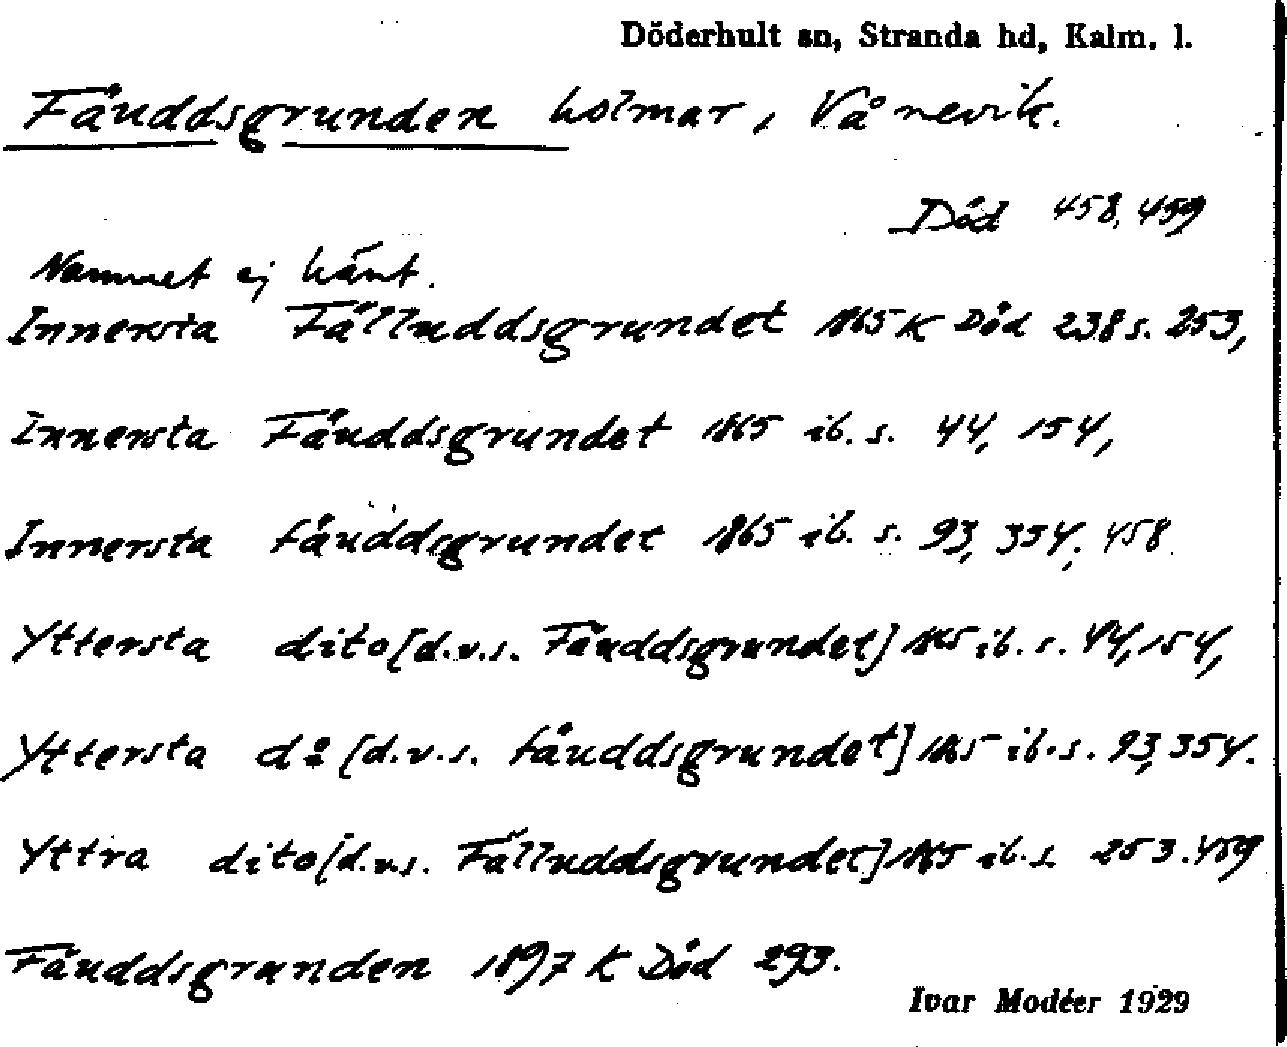 Döderhult sn, Stranda hd, Kalm. l.
Fäuddsgrunden holmar, Vånevik.
Död 458, 459
Namnet ej känt.
Innersta Fälluddsgrundet 1865 K Död 238 s. 253,
Innersta Fäuddsgrundet 1865 ib. s. 44, 154,
Innersta fäuddsgrundet 1865 ib. s. 93, 354, 458
Yttersta dito [d.v.s. Fäuddsgrundet] 1865 ib. s. 44, 154,
Yttersta do [d.v.s. fäuddsgrundet] 1865 ib. s. 93, 354.
Yttra dito [d.v.s. Fälluddsgrundet] 1865 ib. s. 253. 459
Fäuddsgrunden 1897 K Död 293.
Ivar Modéer 1929